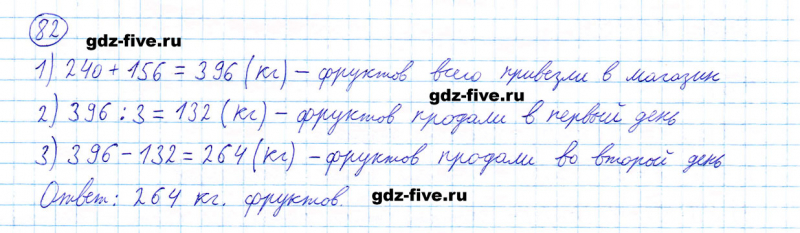 82
gdz-five.ru
1) 240 + 156 = 396 (кг) – фруктов всего привезли в магазин
gdz-five.ru
2) 396 : 3 = 132 (кг) – фруктов продали в первый день
3) 396 – 132 = 264 (кг) – фруктов продали во второй день
Ответ: 264 кг. фруктов.
gdz-five.ru